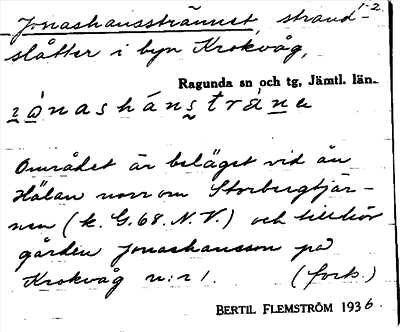 1-2.
Jonashansstrännet, strand-
slåtter i byn Krokvåg,
Ragunda sn och tg, Jämtl. län.
Området är beläget vid ån
Hölan norr om Storbergtjär-
nen (k. G. 68. N. V.) och tillhör
gården Jonashansson på
Krokvåg n:r 1. (forts.)
BERTIL FLEMSTRÖM 1936.